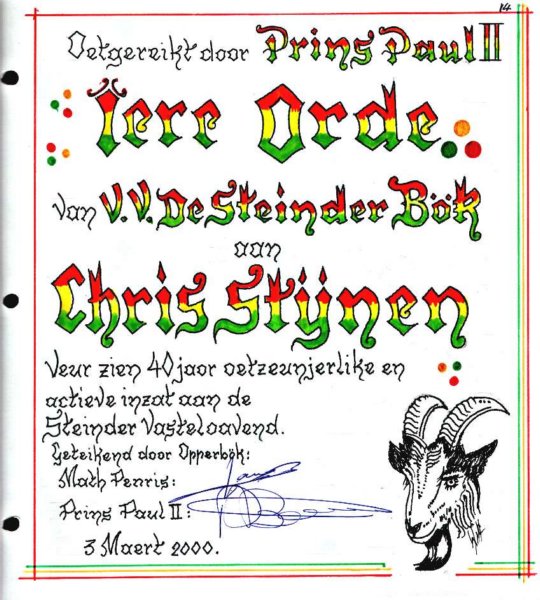 14
Oetgereikt door Prins Paul II
Iere Orde
van V.V. De Steinder Bök
aan
Chris Stijnen
Veur zien 40 jaor oetzeunjerlike en
actieve inzat aan de
Steinder Vasteloavend.
Geteikend door Opperbök:
Math Penris:
Prins Paul II:
3 Maert 2000.